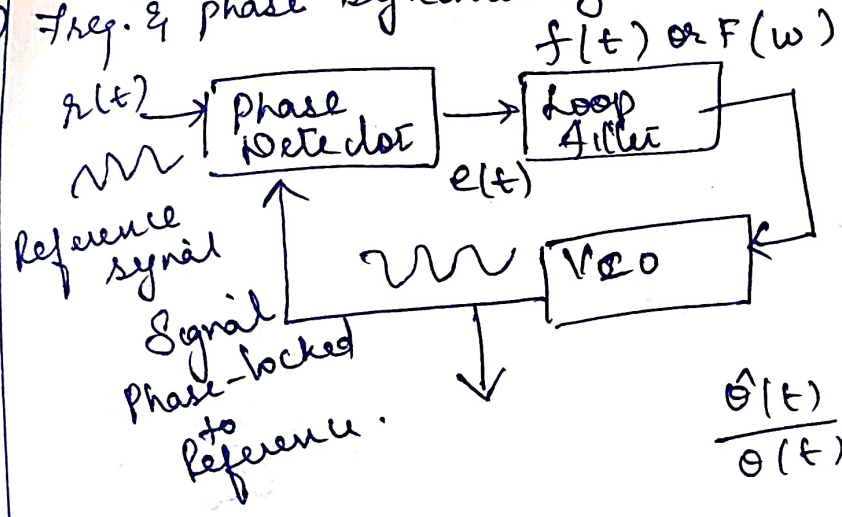 Freq. & phase
f(t) or F(w)
r(t)
Phase
Detector
Loop
filter
e(t)
Reference
signal
VCO
Signal
Phase-locked
to
Reference.
θ̂(t)
θ(t)